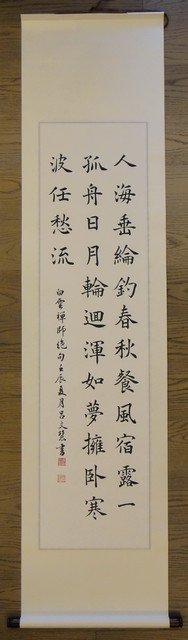 人海垂綸釣春秋餐風宿露一
孤舟日月輪迴渾如夢擁臥寒
波任愁流
白雲禪師絶句壬辰夏月呂文慧書